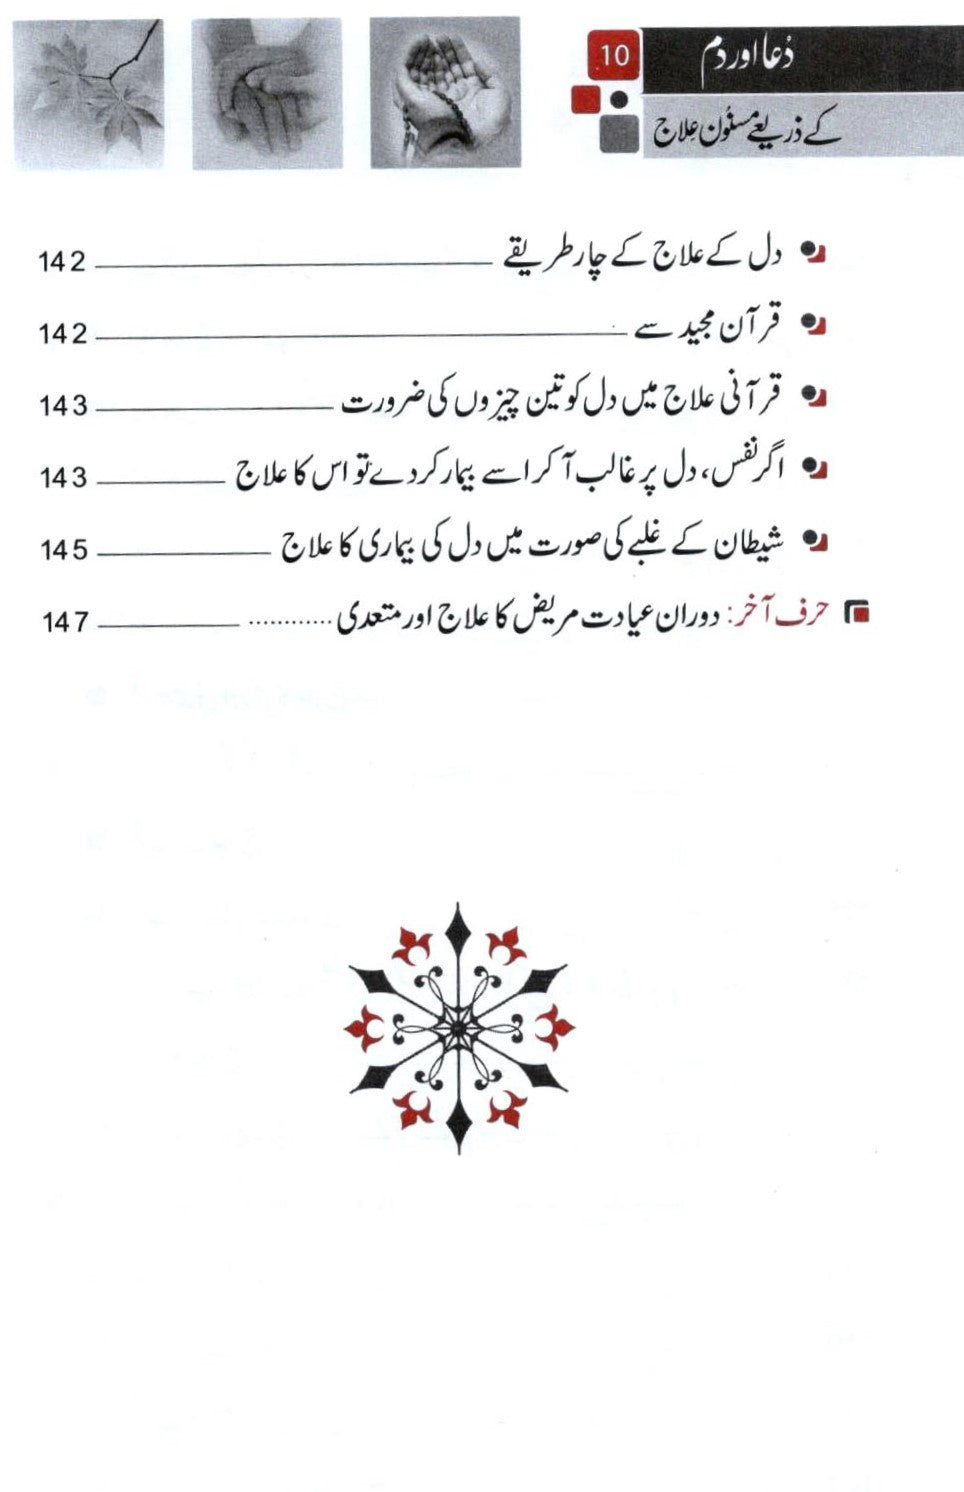 دُعا اور دم
10
کے ذریعے مسنُون عِلاج
دل کے علاج کے چار طریقے ــــــــــ 142
قرآن مجید سے ــــــــــ 142
قرآنی علاج میں دل کو تین چیزوں کی ضرورت ــــــــــ 143
اگر نفس، دل پر غالب آ کر اسے بیمار کر دے تو اس کا علاج ــــــــــ 143
شیطان کے غلبے کی صورت میں دل کی بیماری کا علاج ــــــــــ 145
حرف آخر: دوران عیادت مریض کا علاج اور متعدی ........... ــــــــــ 147